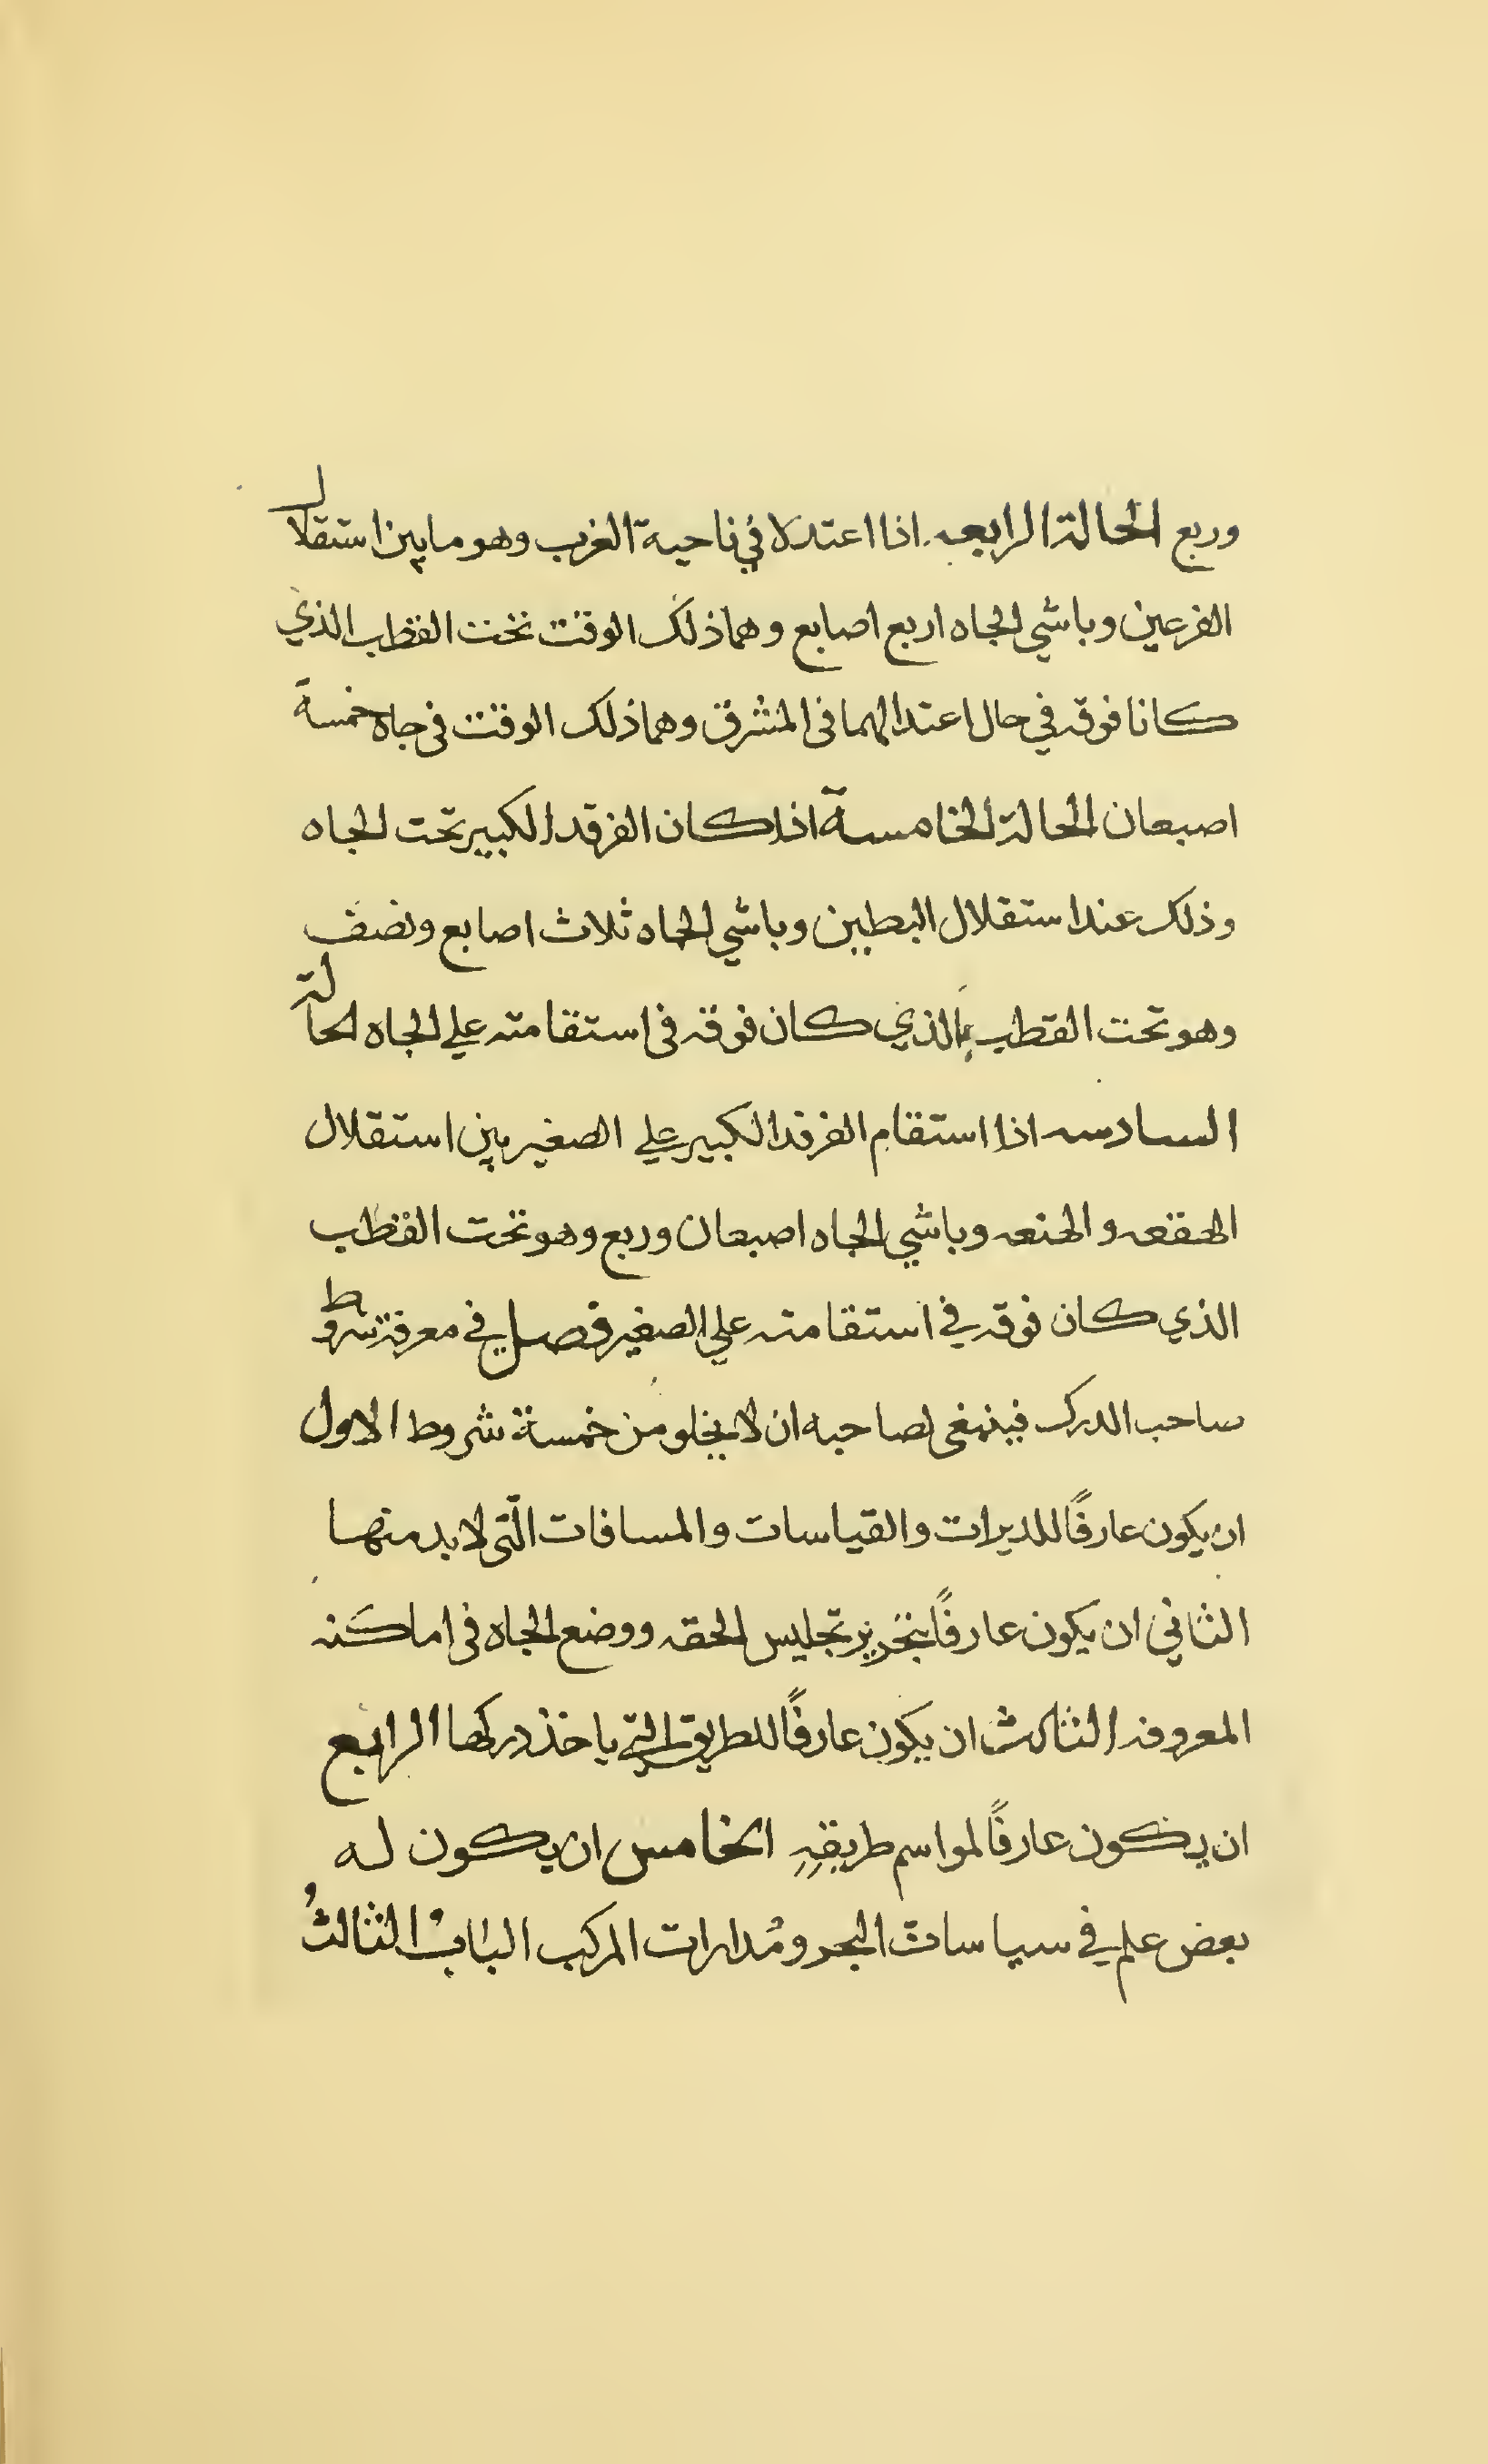 وربع الحالة الرابعه اذا اعتدلا في ناحية الغرب وهو ما بين استقلال
الفرعين وباشي الجاه اربع اصابع وهما ذلك الوقت تحت القطب الذي
كانا فوقه في حال اعتدالهما في المشرق وهما ذلك الوقت في جاه خمسة
اصبعان الحالة الخامسة اذا كان الفرقد الكبير تحت الجاه
وذلك عند استقلال البطين وباشي الجاه ثلاث اصابع ونصف
وهو تحت القطب الذي كان فوقه في استقامته علي الجاه الحالة
السادسه اذا استقام الفرقد الكبير علي الصغير بين استقلال
الهقعه والهنعه وباشي الجاه اصبعان وربع وهو تحت القطب
الذي كان فوقه في استقامته علي الصغير فصل في معرفة شروط
صاحب الدرك فينبغي لصاحبه ان لا يخلو من خمسة شروط الاول
ان يكون عارفًا للديرات والقياسات والمسافات الّتي لا بد منها
الثاني ان يكون عارفًا بتحرير تجليس الحقه ووضع الجاه في اماكنه
المعروفه الثالث ان يكون عارفًا للطريق التي ياخذ دركها الرابع
ان يكون عارفًا لمواسم طريقهِ الخامس ان يكون له
بعض علم في سياسات البحر ومُدارات المركب الباب الثالثُ